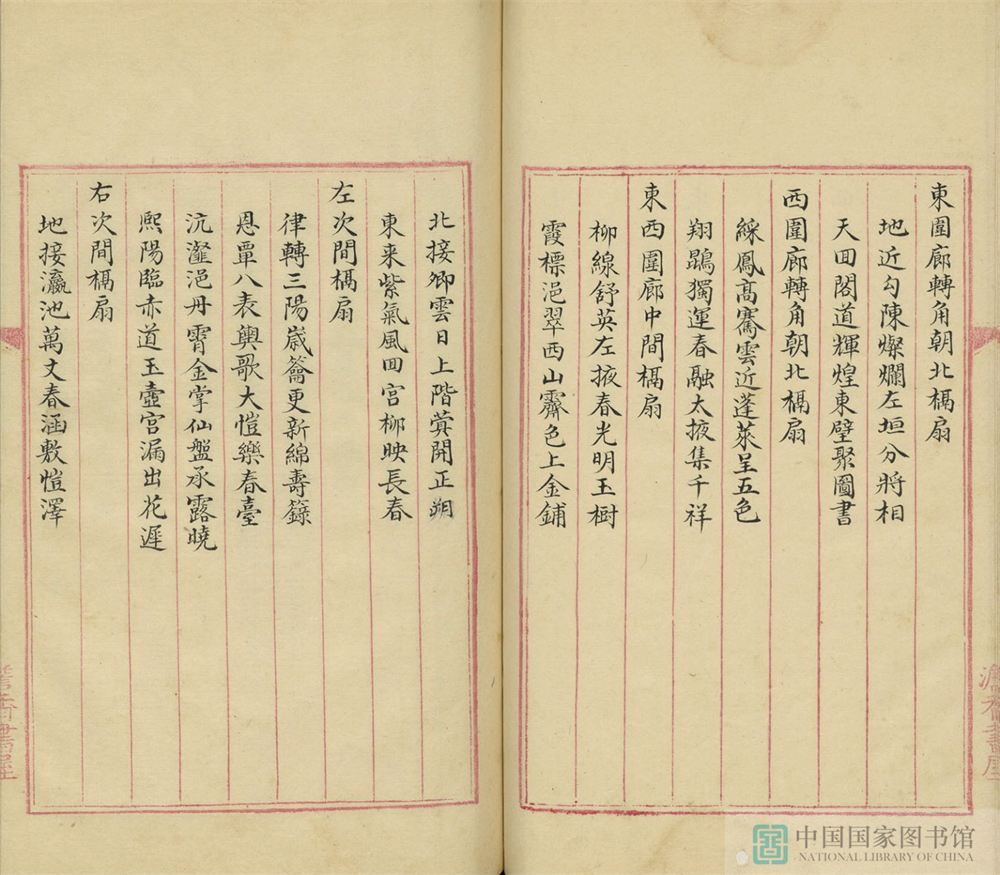 東圍廊轉角朝北槅扇
地近勾陳燦爛左垣分將相
天回閣道輝煌東壁聚圖書
西圍廊轉角朝北槅扇
綵鳳高騫雲近蓬萊呈五色
翔鵾獨運春融太掖集千祥
東西圍廊中間槅扇
柳線舒英左掖春光明玉樹
霞標浥翠西山霽色上金鋪
北接卿雲日上階蓂開正朔
東来紫氣風回宫柳映長春
左次間槅扇
律轉三陽歲籥更新綿壽籙
恩覃八表輿歌大愷樂春臺
沆瀣浥丹霄金掌仙盤承露曉
熙陽臨赤道玉壺宫漏出花遲
右次間槅扇
地接瀛池萬丈春涵敷愷澤
中国国家图书馆
NATIONAL LIBRARY OF CHINA